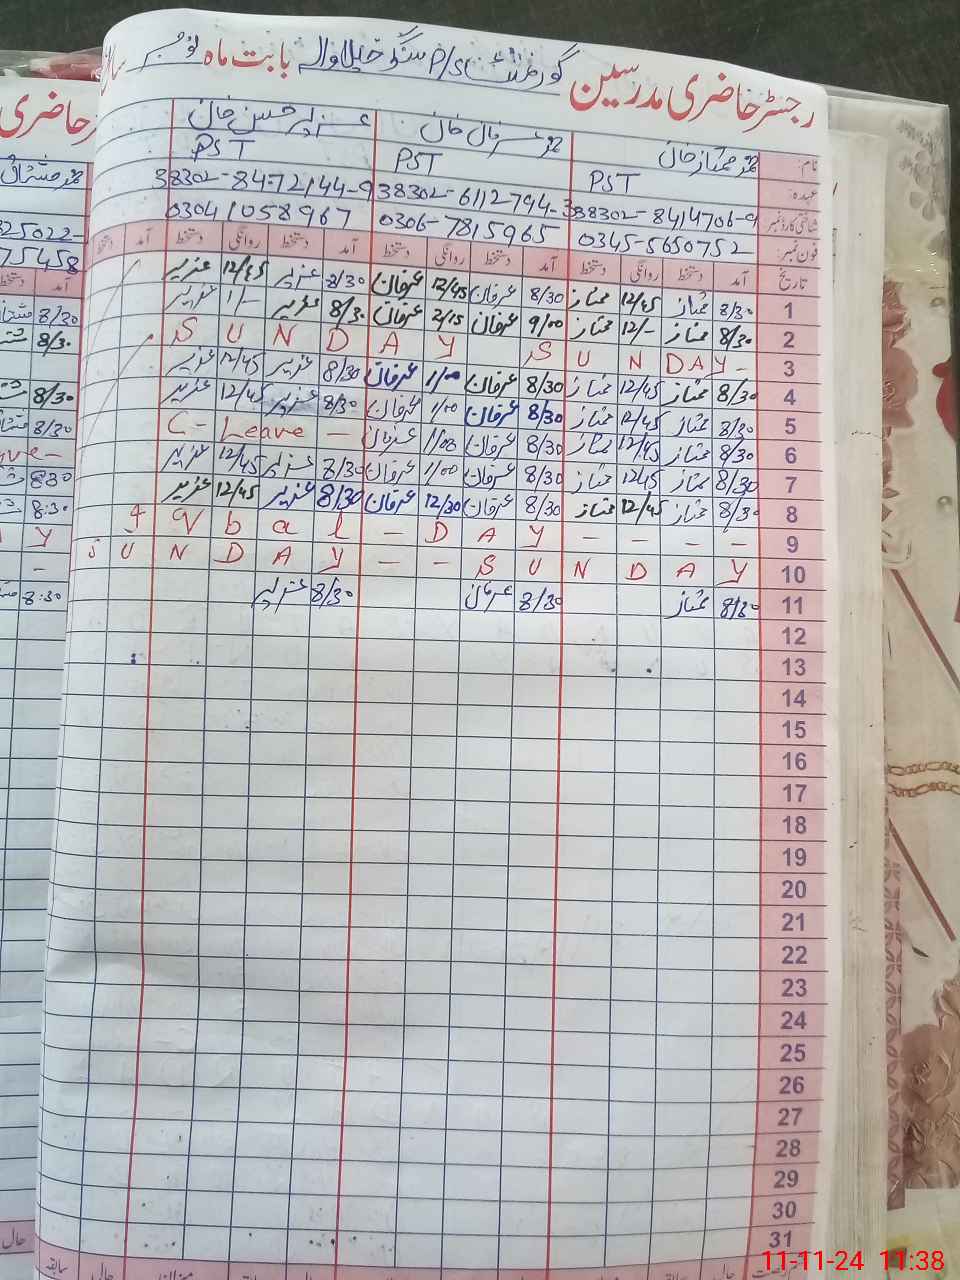 رجسٹر حاضری مدرسین گورنمنٹ P/S بابت ماہ نومبر
نام: محمد ممتاز خان محمد عرفان خان عزیر حسن خان
عہدہ: PST PST PST
شناختی کارڈ نمبر 38302-8414706-9 38302-6112794-3 38302-8472144-9
فون نمبر: 0345-5650752 0306-7815965 03041058967
تاریخ آمد دستخط روانگی دستخط آمد دستخط روانگی دستخط آمد دستخط روانگی دستخط آمد دستخط
1 8/30 ممتاز 12/45 ممتاز 8/30 عرفان 12/45 عرفان 8/30 عزیر 12/45 عزیر
2 8/30 ممتاز 12/- ممتاز 9/00 عرفان 2/15 عرفان 8/30 عزیر 1/- عزیر
3 S U N D A Y S U N D A Y -
4 8/30 ممتاز 12/45 ممتاز 8/30 عرفان 1/00 عرفان 8/30 عزیر 12/45 عزیر
5 8/30 ممتاز 12/45 ممتاز 8/30 عرفان 1/00 عرفان 8/30 عزیر 12/45 عزیر
6 8/30 ممتاز 12/45 ممتاز 8/30 عرفان 1/00 عرفان C - Leave -
7 8/30 ممتاز 12/45 ممتاز 8/30 عرفان 1/00 عرفان 8/30 عزیر 12/45 عزیر
8 8/30 ممتاز 12/45 ممتاز 8/30 عرفان 12/30 عرفان 8/30 عزیر 12/45 عزیر
9 q b a l - D A Y - - - -
10 S U N D A Y - - S U N D A Y
11 8/30 ممتاز 8/30 عرفان 8/30 عزیر
12
13
14
15
16
17
18
19
20
21
22
23
24
25
26
27
28
29
30
31
حاضری
325022-
75458
آمد
8/30
8/30
8/30
8/30
ve-
8:30
8:30
Y
-
8:30
حال
سابقہ حالی میزان
11-11-24 11:38